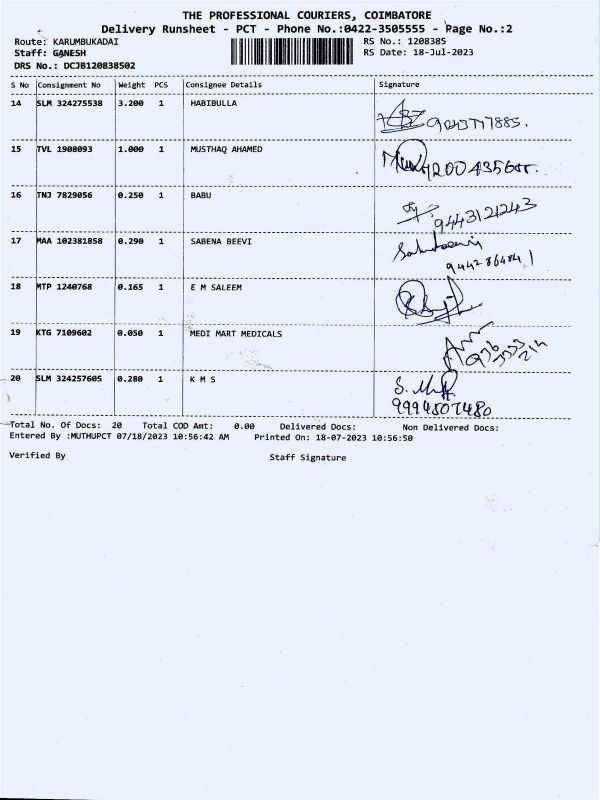 THE PROFESSIONAL COURIERS, COIMBATORE
Delivery Runsheet - PCT - Phone No.:0422-3505555 - Page No.:2
Route: KARUMBUKADAI RS No.: 1208385
Staff: GANESH RS Date: 18-Jul-2023
DRS No.: DCJB120838502
S No Consignment No Weight PCS Consignee Details Signature
14 SLM 324275538 3.200 1 HABIBULLA
15 TVL 1908093 1.000 1 MUSTHAQ AHAMED
16 TNJ 7829056 0.250 1 BABU
9443121243
17 MAA 102381858 0.290 1 SABENA BEEVI
18 MTP 1240768 0.165 1 E M SALEEM
19 KTG 7109602 0.050 1 MEDI MART MEDICALS
20 SLM 324257605 0.280 1 K M S
9994807480
Total No. Of Docs: 20 Total COD Amt: 0.00 Delivered Docs: Non Delivered Docs:
Entered By :MUTHUPCT 07/18/2023 10:56:42 AM Printed On: 18-07-2023 10:56:50
Verified By Staff Signature